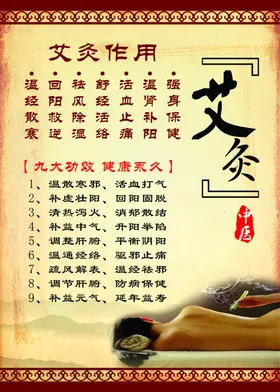 艾灸作用
• 温经散寒
• 回阳救逆
• 祛风除湿
• 舒经活络
• 活血止痛
• 温肾补阳
• 强身保健
【九大功效 健康永久】
1、温散寒邪、活血打气
2、补虚壮阳、回阳固脱
3、清热泻火、消郁散结
4、补益中气、升阳举陷
5、调整肝腑、平衡阴阳
6、温通经络、驱邪止痛
7、疏风解表、温经祛邪
8、调节肝腑、防病保健
9、补益元气、延年益寿
『艾灸』
中医